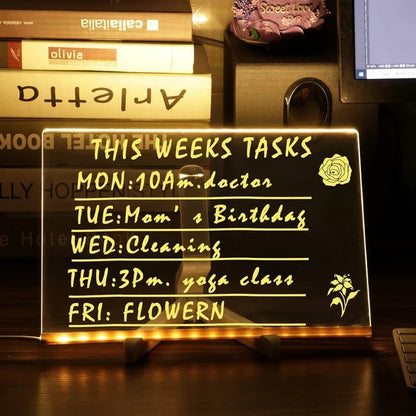 callaitalia
olivia
callaitalia
Arletta
THE HOTEL BOOK
Sweet Love
THIS WEEKS TASKS
MON:10Am.doctor
TUE:Mom's Birthdag
WED:Cleaning
THU:3Pm. yoga class
FRI: FLOWERN